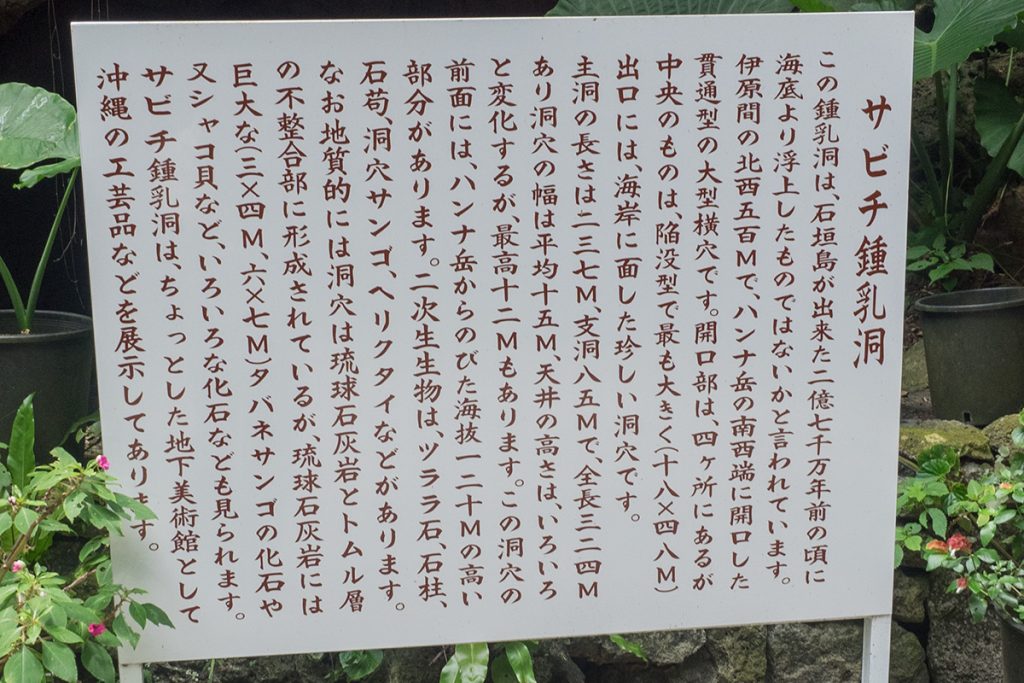 サビチ鍾乳洞
この鍾乳洞は、石垣島が出来た二億七千万年前の頃に
海底より浮上したものではないかと言われています。
伊原間の北西五百Mで、ハンナ岳の南西端に開口した
貫通型の大型横穴です。開口部は、四ヶ所にあるが
中央のものは、陥没型で最も大きく(十八×四八M)
出口には、海岸に面した珍しい洞穴です。
主洞の長さは二三七M、支洞八五Mで、全長三二四M
あり洞穴の幅は平均十五M、天井の高さは、いろいろ
と変化するが、最高十二Mもあります。この洞穴の
前面には、ハンナ岳からのびた海抜一二十Mの高い
部分があります。二次生生物は、ツララ石、石柱、
石荀、洞穴サンゴ、ヘリクタイなどがあります。
なお地質的には洞穴は琉球石灰岩とトムル層
の不整合部に形成されているが、琉球石灰岩には
巨大な(三×四M、六×七M)タバネサンゴの化石や
又シャコ貝など、いろいろな化石なども見られます。
サビチ鍾乳洞は、ちょっとした地下美術館として
沖縄の工芸品などを展示してあります。